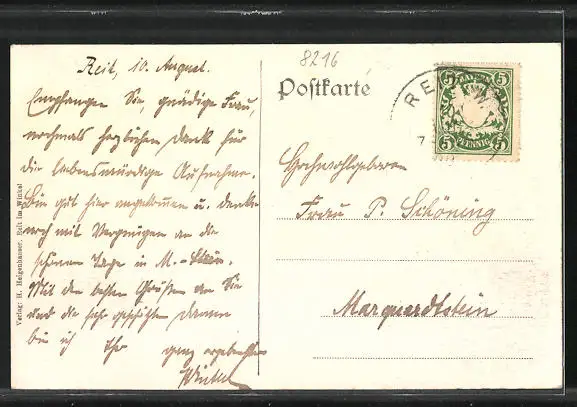 8216
Reit, 10. August.
Postkarte
Empfangen Sie, gnädige Frau,
nochmals herzlichen Dank für
die liebenswürdige Aufnahme.
Bin gut hier angekommen u. denke
noch mit Vergnügen an die
schönen Tage in M.-stein.
Mit den besten Grüßen an Sie
und die sehr geschätzten Damen
bin ich Ihr
ganz ergebenster
BAYERN
5 5
5 5
PFENNIG
REIT
7
Hochwohlgeboren
Frau P. Schöning
Marquardtstein
Verlag: H. Heigenhauser, Reit im Winkel